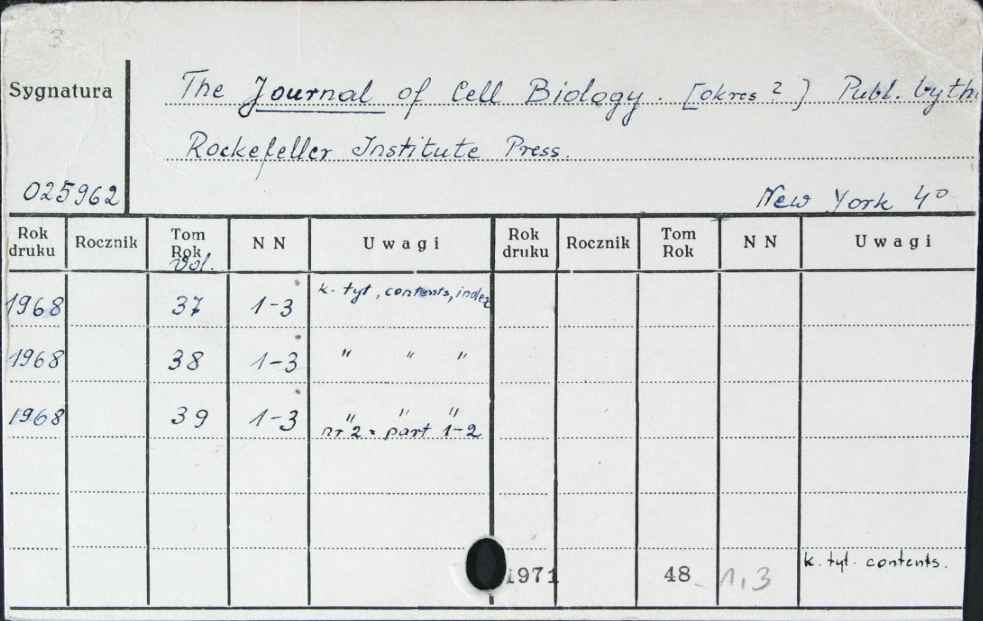 3
Sygnatura
The Journal of Cell Biology. [okres ?] Publ. by th
Rockefeller Institute Press.
025962
New York 4°
Rok druku Rocznik Tom Rok Vol. N N Uwagi Rok druku Rocznik Tom Rok N N Uwagi
1968 37 1-3 k. tyt, contents, index
1968 38 1-3 " " "
1968 39 1-3 " " "
nr 2 = part 1-2
1971 48 1,3 k. tyt. contents.